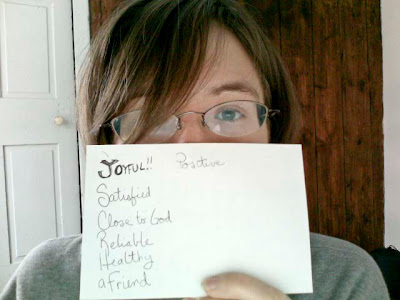 Joyful!! Positive
Satisfied
Close to God
Reliable
Healthy
a Friend